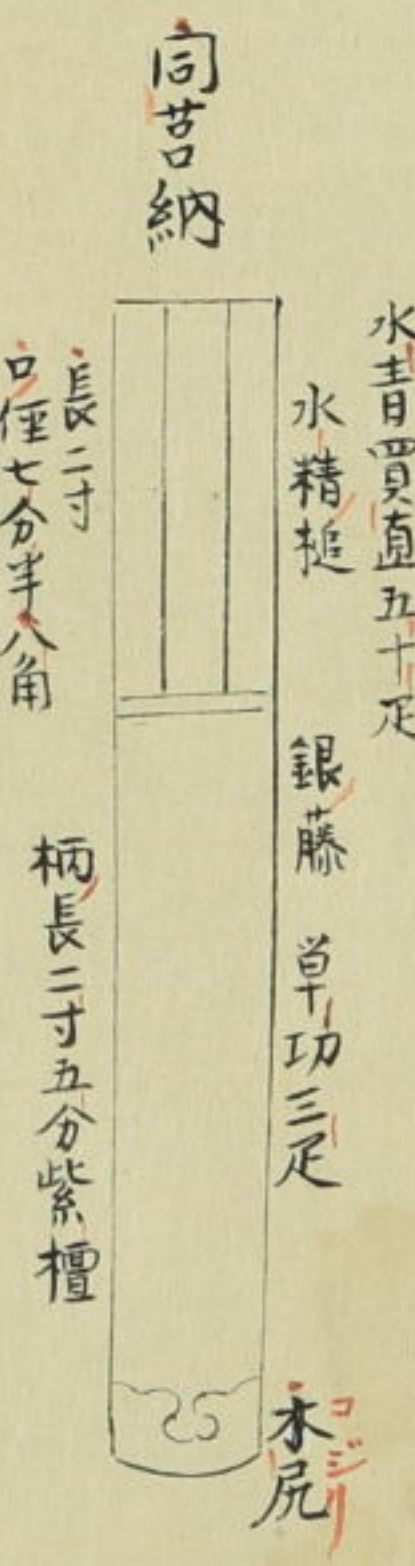 同筥納
水青買直五十疋
水精槌
銀藤 単功三疋
木尻
コジリ
長二寸
口径七分半八角
柄長二寸五分紫檀